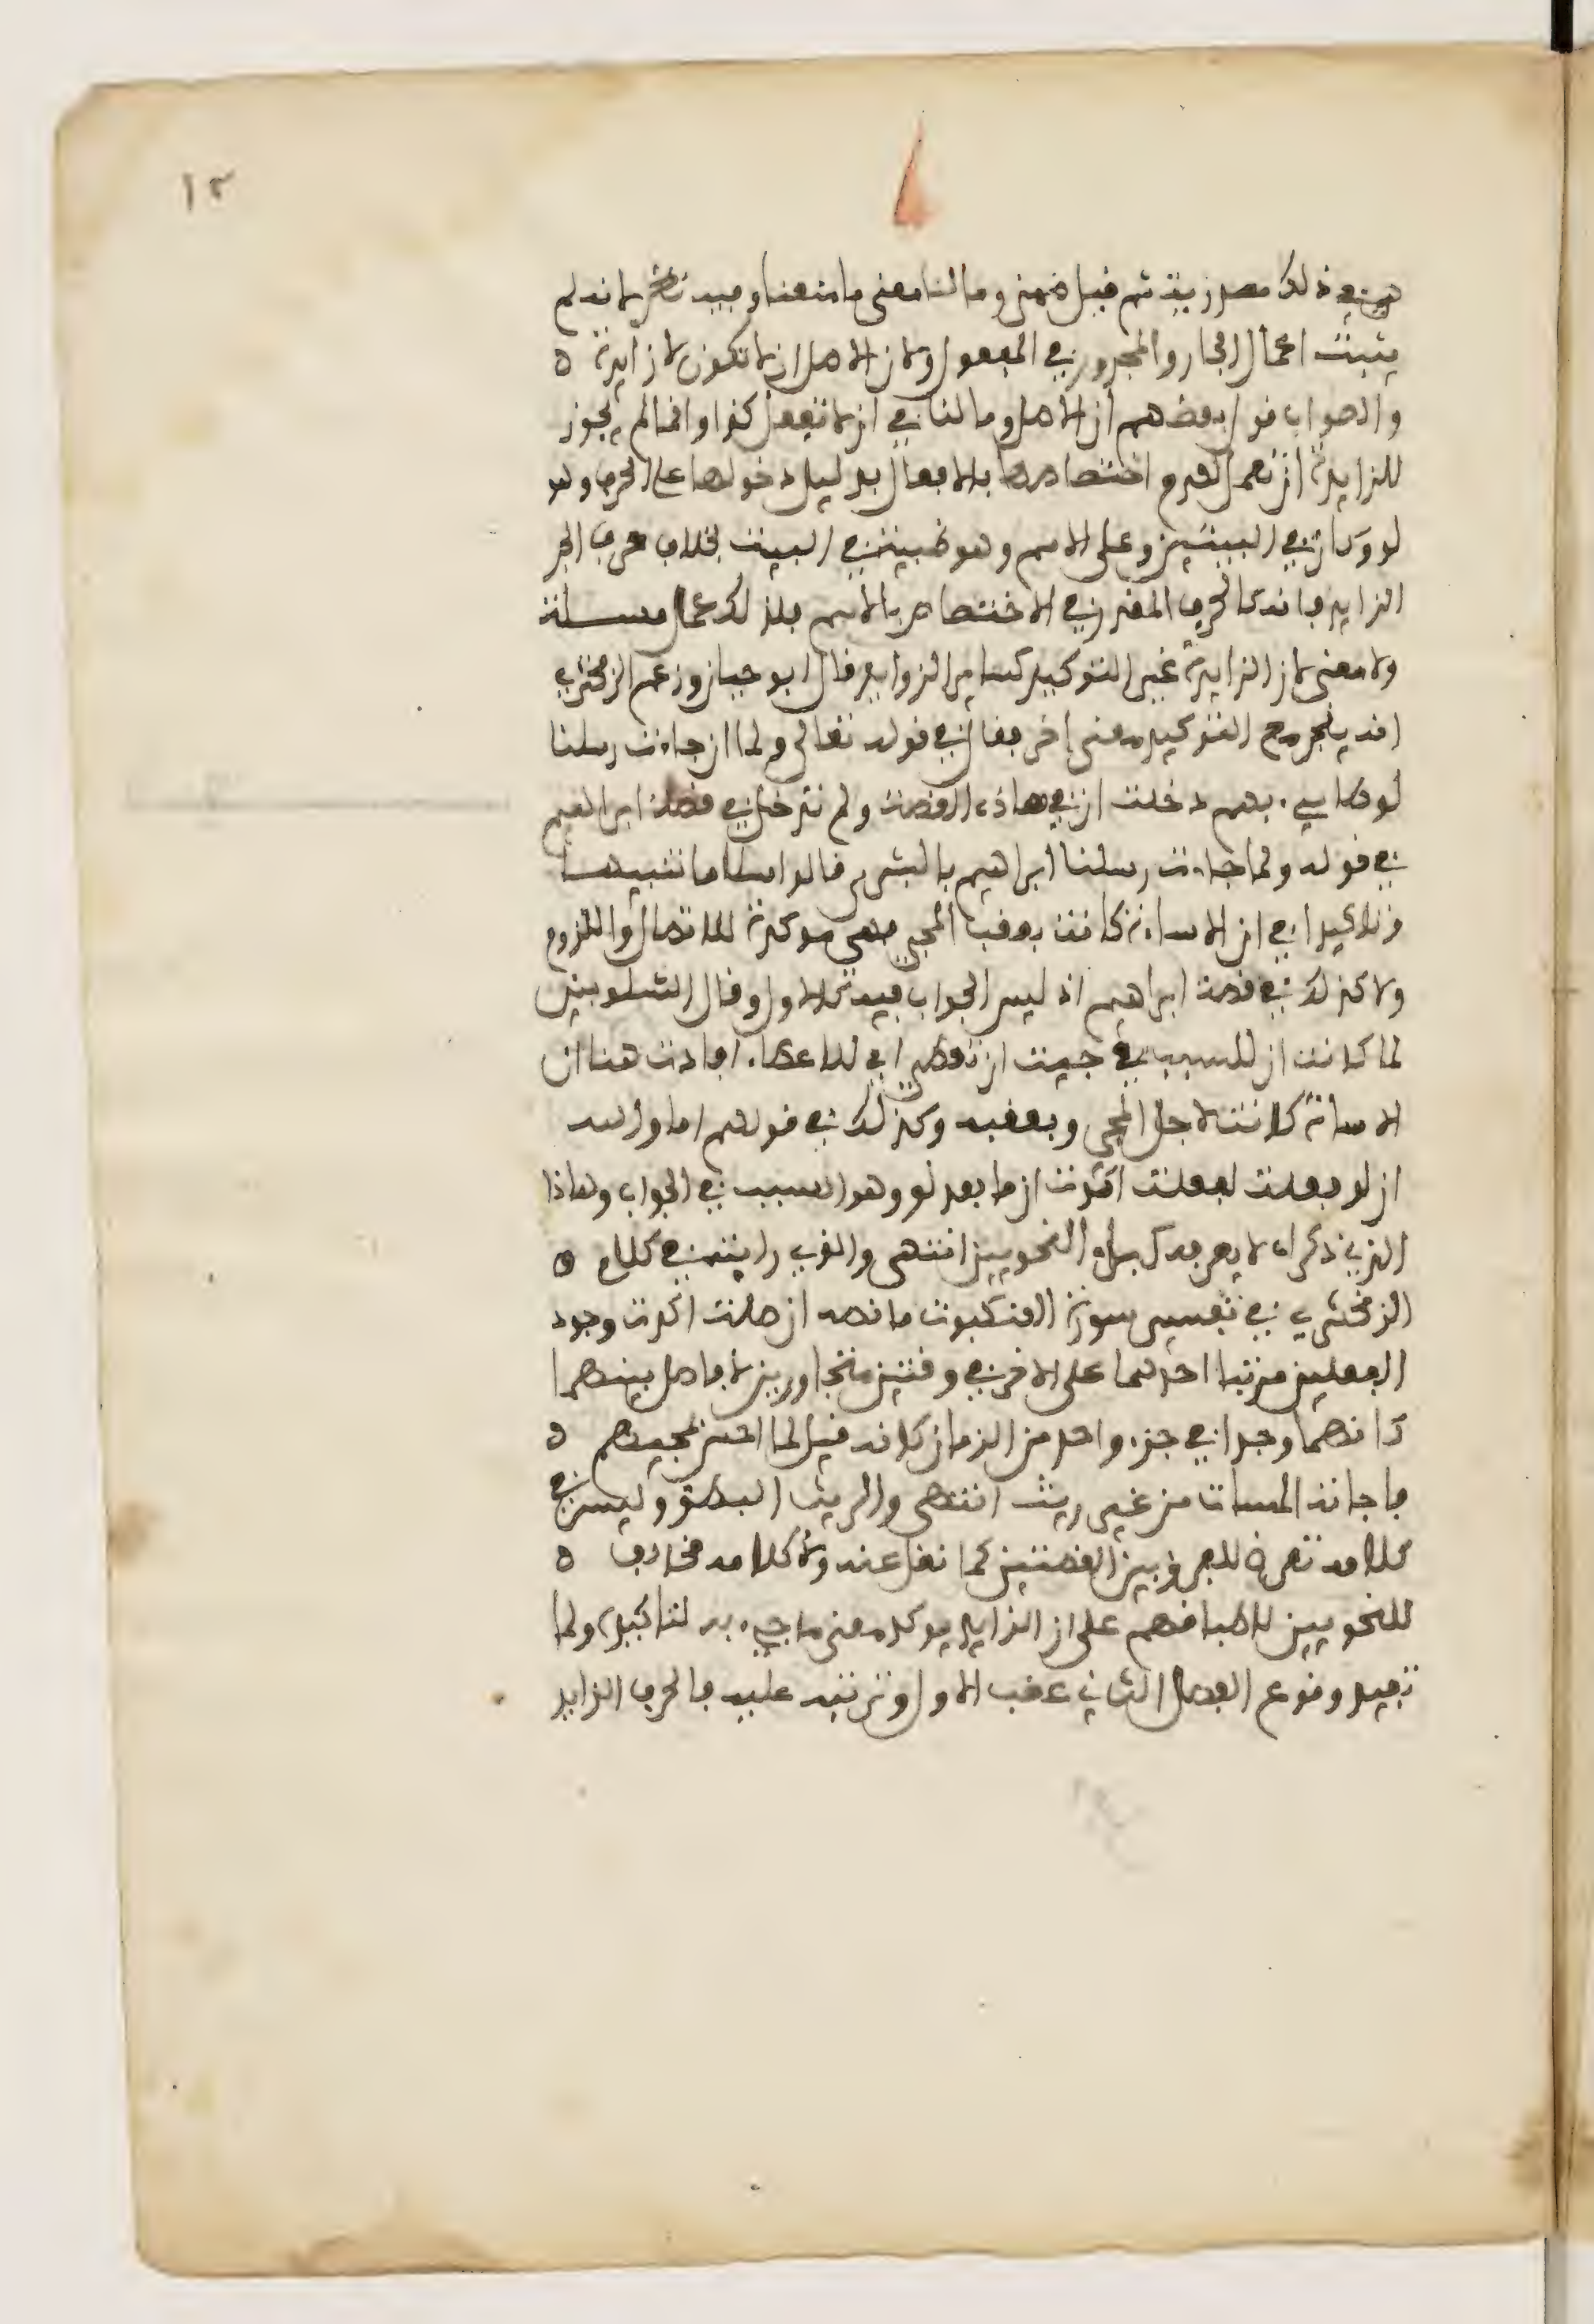 ١٢
ذلك مصدريته ثم قيل ضمن وما لنا معنى ما منعنا وفيه نظر لانه لم
يثبت اعمال الجار والمجرور في المفعول ولان الاصل ان لا تكون لا زايدة ه
والصواب قول بعضهم ان الاصل وما لنا في ان لا نفعل كذا وانما لم يجوز
للزايدة ان تعمل لعدم اختصاصها بالافعال بدليل دخولها على الحرف وهو
لو وكان في البيتين وعلى الاسم وهو ظبية في البيت بخلاف حرف الجر
الزايد فانه كالحرف المعدى في الاختصاص بالاسم فلذلك عمل مسلة
ولا معنى لان الزايدة غير التوكيد كساير الزوايد قال ابو حيان وزعم الزمخشري
انه ينجر مع التوكيد معنى اخر فقال في قوله تعالى ولما ان جاءت رسلنا
لوطا سيء بهم دخلت ان في هاذه القصة ولم تدخل في قصة ابراهيم
في قوله ولما جاءت رسلنا ابراهيم بالبشرى قالوا سلاما تنبيها
وتاكيدا في ان الاساءة كانت بعقب المجيء فهي موكدة للاتصال واللزوم
ولا كذلك في قصة ابراهيم اذ ليس الجواب فيه كالاول وقال الشلوبين
لما كانت ان للسبب في جيت ان تعطي اي للاعطاء افادت هنا ان
الاساءة كانت لاجل المجيء وبعقبه وكذلك في قولهم اما والله
ان لو فعلت لفعلت اكدت ان ما بعد لو وهو السبب في الجواب وهاذا
الذي ذكراه لا يعرفه كبراء النحويين انتهى والذي رايته في كلام ه
الزمخشري في تفسير سورة العنكبوت ما نصه ان صلت اكدت وجود
الفعلين مرتبا احدهما على الاخر في وقتين متجاورين لا فاصل بينهما
كانهما وجدا في جزء واحد من الزمان كانه قيل لما احس بمجيئهم ه
فاجاته المساة من غير ريث انتهى والريث البطؤ وليس في
كلامه تعرض للفرق بين القصتين كما نقل عنه ولا كلامه مخالف ه
للنحويين لاطباقهم على ان الزايد يوكد معنى ما جيء به لتاكيده ولما
تفيد وقوع الفعل الثاني عقب الاول وترتبه عليه فالحرف الزايد